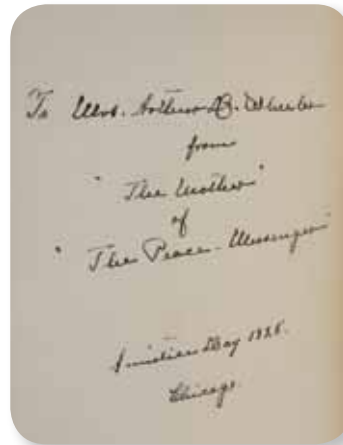 To Mrs. Arthur D. Wheeler
from
"The Mother"
of
"The Peace-Messenger"
Armistice Day 1928.
Chicago.